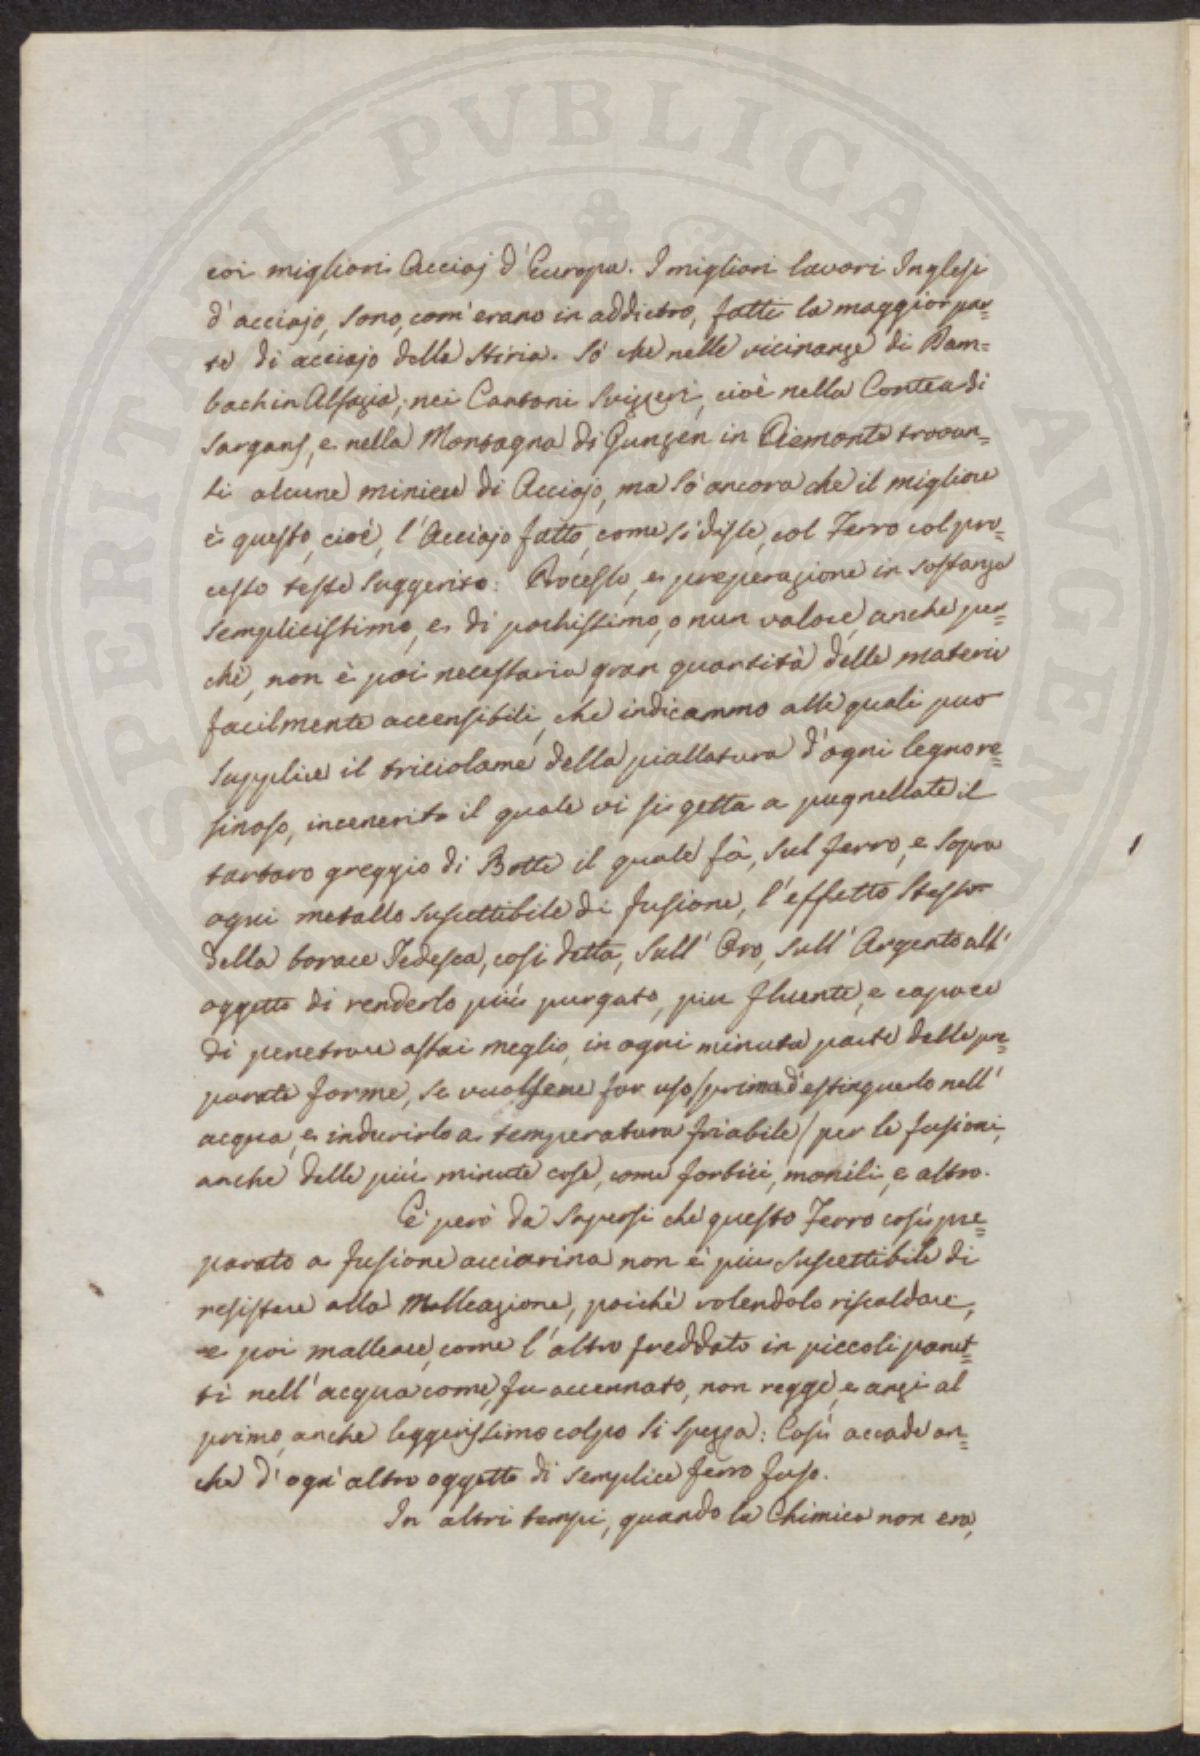 coi migliori Acciaj d'Europa. I migliori lavori Inglesi
d'acciajo, sono, com'erano in addietro, fatti la maggior par=
te di acciajo della Stiria. Sò che nelle vicinanze di Dam=
bach in Alsazia; nei Cantoni Svizzeri, cioè nella Contea di
Sargans, e nella Montagna di Gunzen in Piemonte trovan=
si alcune miniere di Acciajo, ma sò ancora che il migliore
è questo, cioè, l'Acciajo fatto, come si disse, col Ferro col pro=
cesso testè suggerito: Processo, e preperazione in sostanza
semplicissimo, e di pochissimo, o nun valore, anche per=
chè, non è poi necessaria gran quantità delle materie
facilmente accensibili, che indicammo alle quali può
supplire il triciolame della piallatura d'ogni legno re=
sinoso, incenerito il quale vi si getta a pugnellate il
tartaro greggio di Botte il quale fà, sul ferro, e sopra
ogni metallo suscettibile di fusione, l'effetto stesso
della borace Tedesca, così detta, sull'Oro, sull'Argento all'
oggetto di renderlo più purgato, piu fluente, e capace
di penetrare assai meglio, in ogni minuta parte delle pre=
parate forme, se vuolsene far uso /prima d'estinguerlo nell'
acqua, e indurirlo a temperatura friabile/ per le fusioni,
anche delle più minute cose, come forbici, monili, e altro.
È però da sapersi che questo Ferro così pre=
parato a fusione acciarina non è più suscettibile di
resistere alla Malleazione, poichè volendolo riscaldare,
e poi malleare, come l'altro freddato in piccoli panet=
ti nell'acqua come fu accennato, non regge, e anzi al
primo, anche leggerissimo colpo si spezza: Così accade an=
che d'ogn'altro oggetto di semplice ferro fuso.
In altri tempi, quando la Chimica non era,
PERITATI PUBLICAE AUGEN